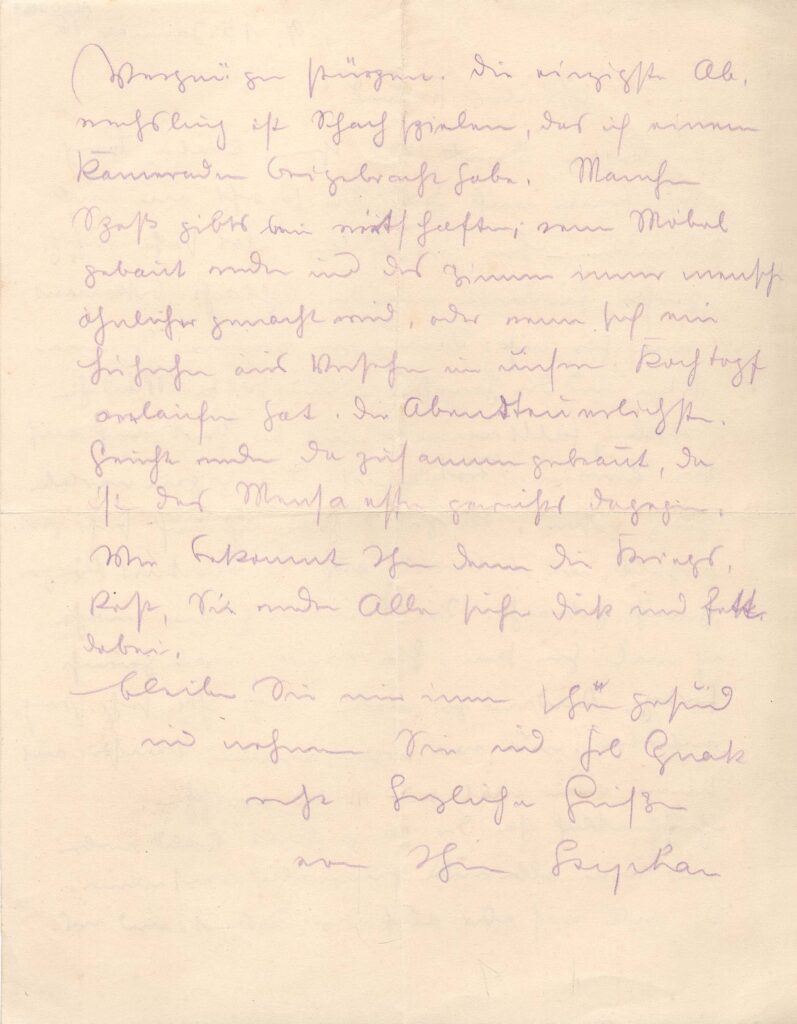 Vergnügen stürzen. Die einzigste Ab-
wechslung ist Schach spielen, das ich einem
Kameraden beigebracht habe. Manchen
Spaß gibts beim wirtschaften, wenn Möbel
gebaut werden und das Zimmer immer mensch
ähnlicher gemacht wird, oder wenn sich ein
Hühnchen aus Versehen in unsern Kochtopf
verlaufen hat. Die Abendteuerlichsten
Gerichte werden da zusammengebraut, da
ist das Mensa essen garnichts dagegen.
Wie bekommt Ihnen denn die Kriegs-
kost, Sie werden Alle sicher dick und fett
dabei.
Bleiben Sie mir immer schön gesund
und nehmen Sie und
recht herzliche Grüße
von Ihrem Stephan